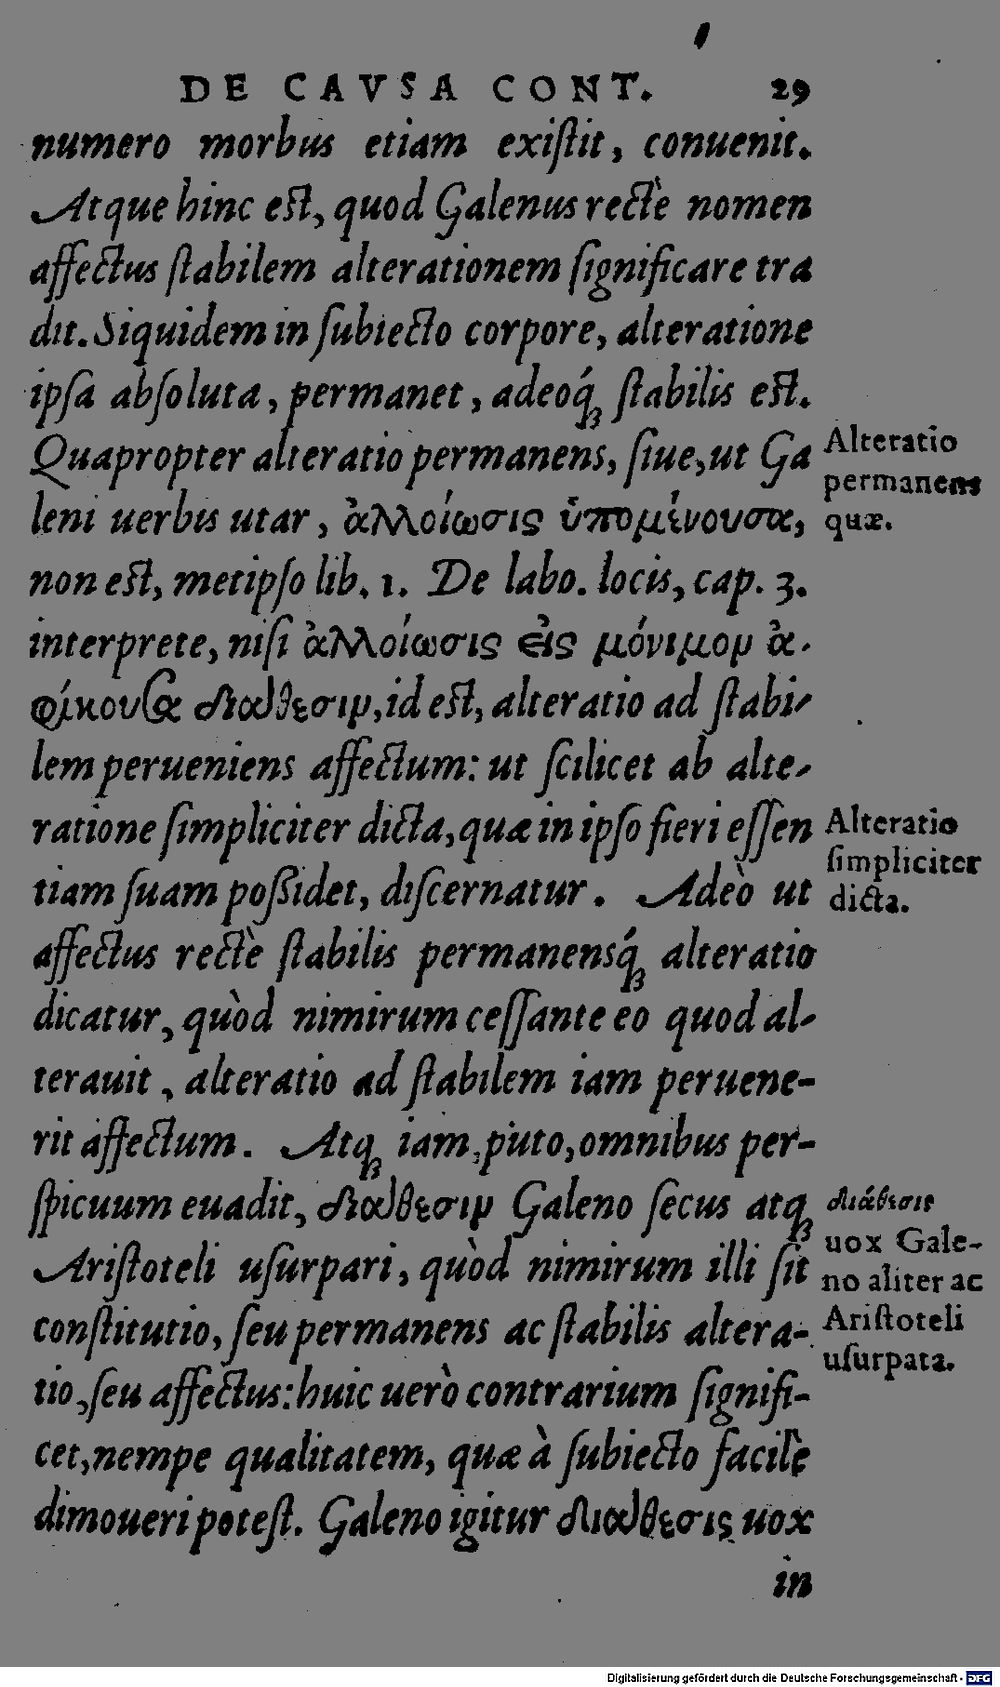 DE CAVSA CONT. 29
numero morbus etiam exiſtit, conuenit.
Atque hinc eſt, quod Galenus rectè nomen
affectus ſtabilem alterationem ſignificare tra
dit. Siquidem in ſubiecto corpore, alteratione
ipſa abſoluta, permanet, adeoq́ꝫ ſtabilis eſt.
Quapropter alteratio permanens, ſiue, ut Ga
leni uerbis utar, ἀλλοίωσις ὑπομένουσα,
non eſt, metipſo lib. 1. De labo. locis, cap. 3.
interprete, niſi ἀλλοίωσις εἰς μόνιμον ἀ-
φίκουσα διάθεσιν, id eſt, alteratio ad ſtabi-
lem perueniens affectum: ut ſcilicet ab alte-
ratione ſimpliciter dicta, quæ in ipſo fieri eſſen
tiam ſuam poßidet, diſcernatur. Adeò ut
affectus rectè ſtabilis permanensq́ꝫ alteratio
dicatur, quòd nimirum ceſſante eo quod al-
terauit, alteratio ad ſtabilem iam peruene-
rit affectum. Atqꝫ iam, puto, omnibus per-
ſpicuum euadit, διάθεσιν Galeno ſecus atqꝫ
Ariſtoteli uſurpari, quòd nimirum illi ſit
conſtitutio, ſeu permanens ac ſtabilis altera-
tio, ſeu affectus: huic uerò contrarium ſignifi-
cet, nempe qualitatem, quæ à ſubiecto facilè
dimoueri poteſt. Galeno igitur διάθεσις uox
in
Alteratio
permanens
quæ.
Alteratio
ſimpliciter
dicta.
διάθεσις
uox Gale-
no aliter ac
Ariſtoteli
uſurpata.
Digitalisierung gefördert durch die Deutsche Forschungsgemeinschaft - DFG